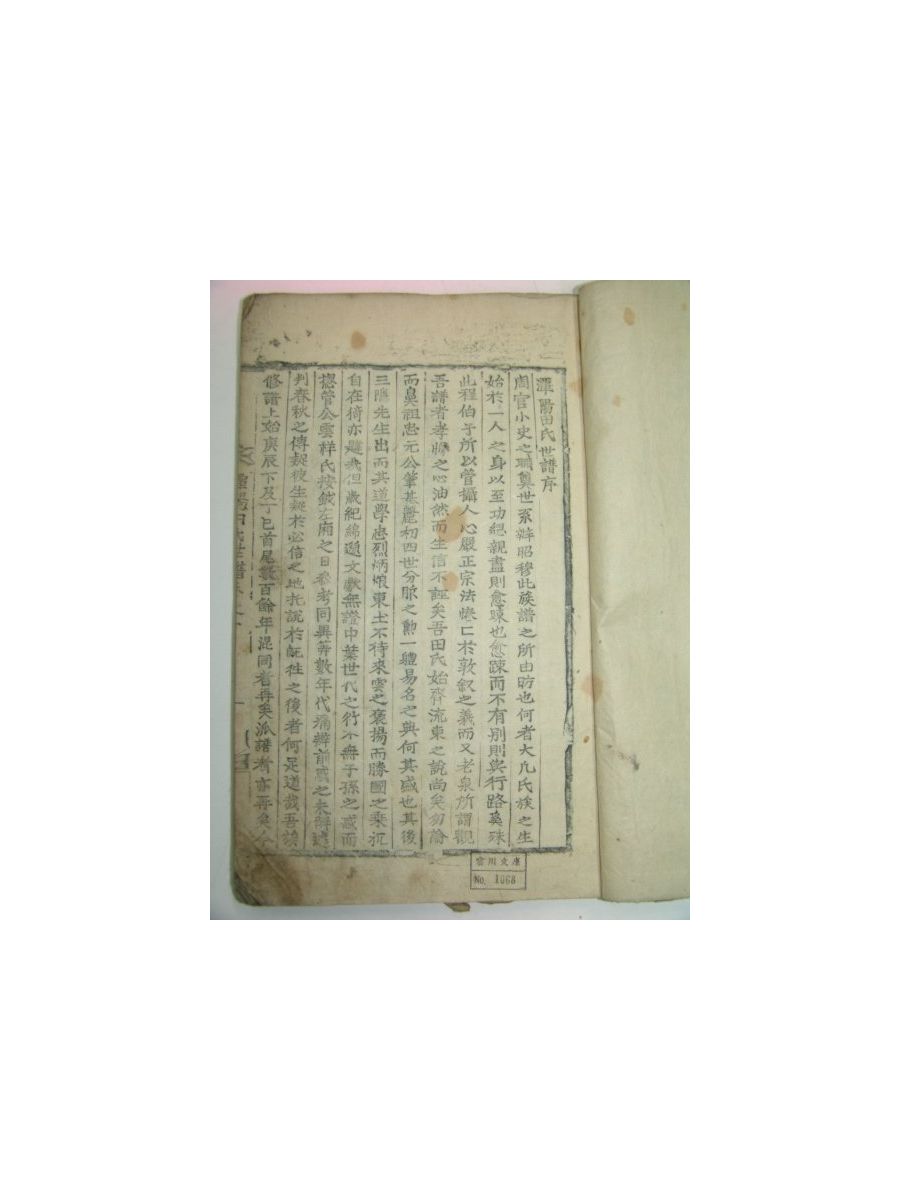 潭陽田氏世譜序
周官小史之職奠世系辨昭穆此族譜之所由昉也何者大凡氏族之生
始於一人之身以至功緦親盡則愈踈也愈踈而不有別則與行路奚殊
此程伯子所以管攝人心嚴正宗法惓〻於敦叙之義而又老泉所謂觀
吾譜者孝悌之心油然而生信不誣矣吾田氏始齊流東之說尚矣勿論
而鼻祖忠元公肇基麗初四世分脈之勲一軆易名之典何其盛也其後
三隱先生出而其道學忠烈炳烺東土不待來雲之褒揚而勝國之乘
自在猗亦韙哉但歲紀綿邈文獻無證中葉世代之 不無子孫之惑而
摠管公雲祥氏按 左廂之日叅考同異 數年代 辨前 之未
判春秋之傳 彼生疑於必信之地托說於 之後者何足道哉吾
修譜上始庚辰下及丁巳首尾數百餘年混同者再矣派譜者亦再矣今
潭陽田氏世譜卷之
雲川文庫
No. 1068